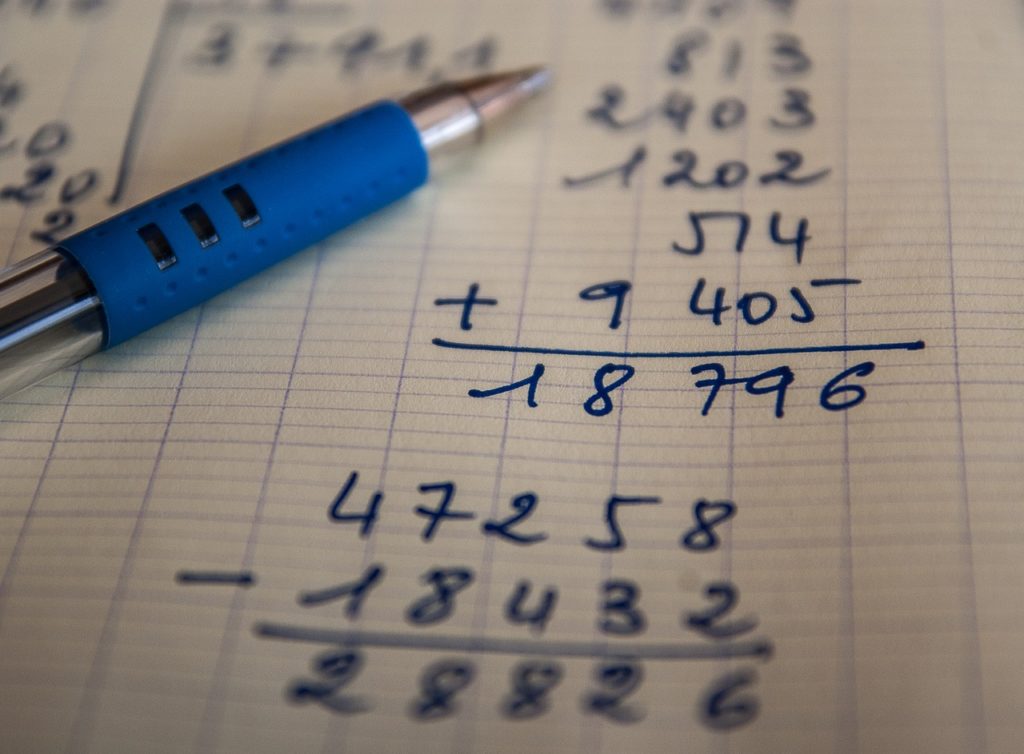 20
20
2
813
2403
1202
514
+ 9 405
18 796
47258
- 18432
28826